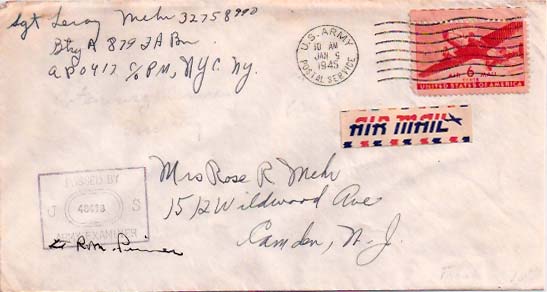 Sgt Leroy Mehr 32758990
Btry A 879 FA Bn
APO 417 c/o PM, NYC. NY.
U.S. ARMY
10 AM
JAN 5
1945
POSTAL SERVICE
AIR 6 MAIL
CENTS
UNITED STATES OF AMERICA
AIR MAIL
Mrs Rose R Mehr
1512 Wildwood Ave
Camden, N. J.
PASSED BY
U S
ARMY EXAMINER
Lt R.M.